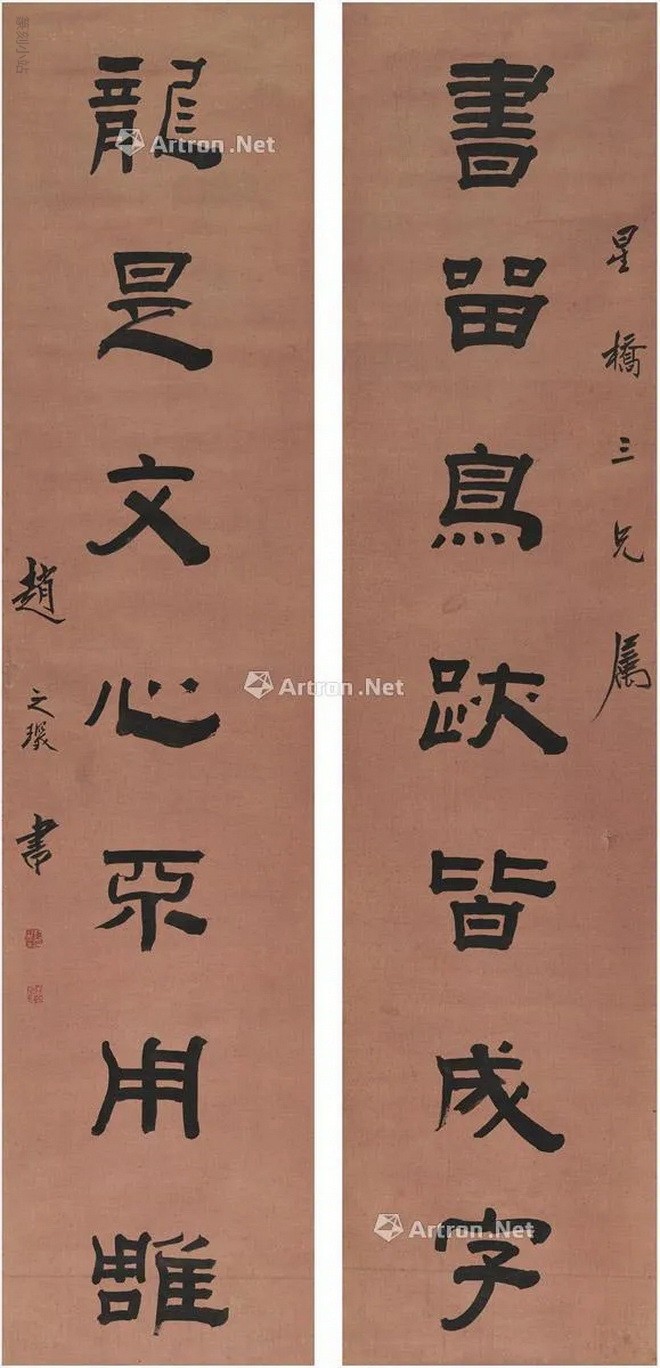 星橋三兄屬
書留鳥跡皆成字
龍是文心不用雕
趙之琛書
篆刻小站
Artron.Net
Artron.Net
Artron.Net